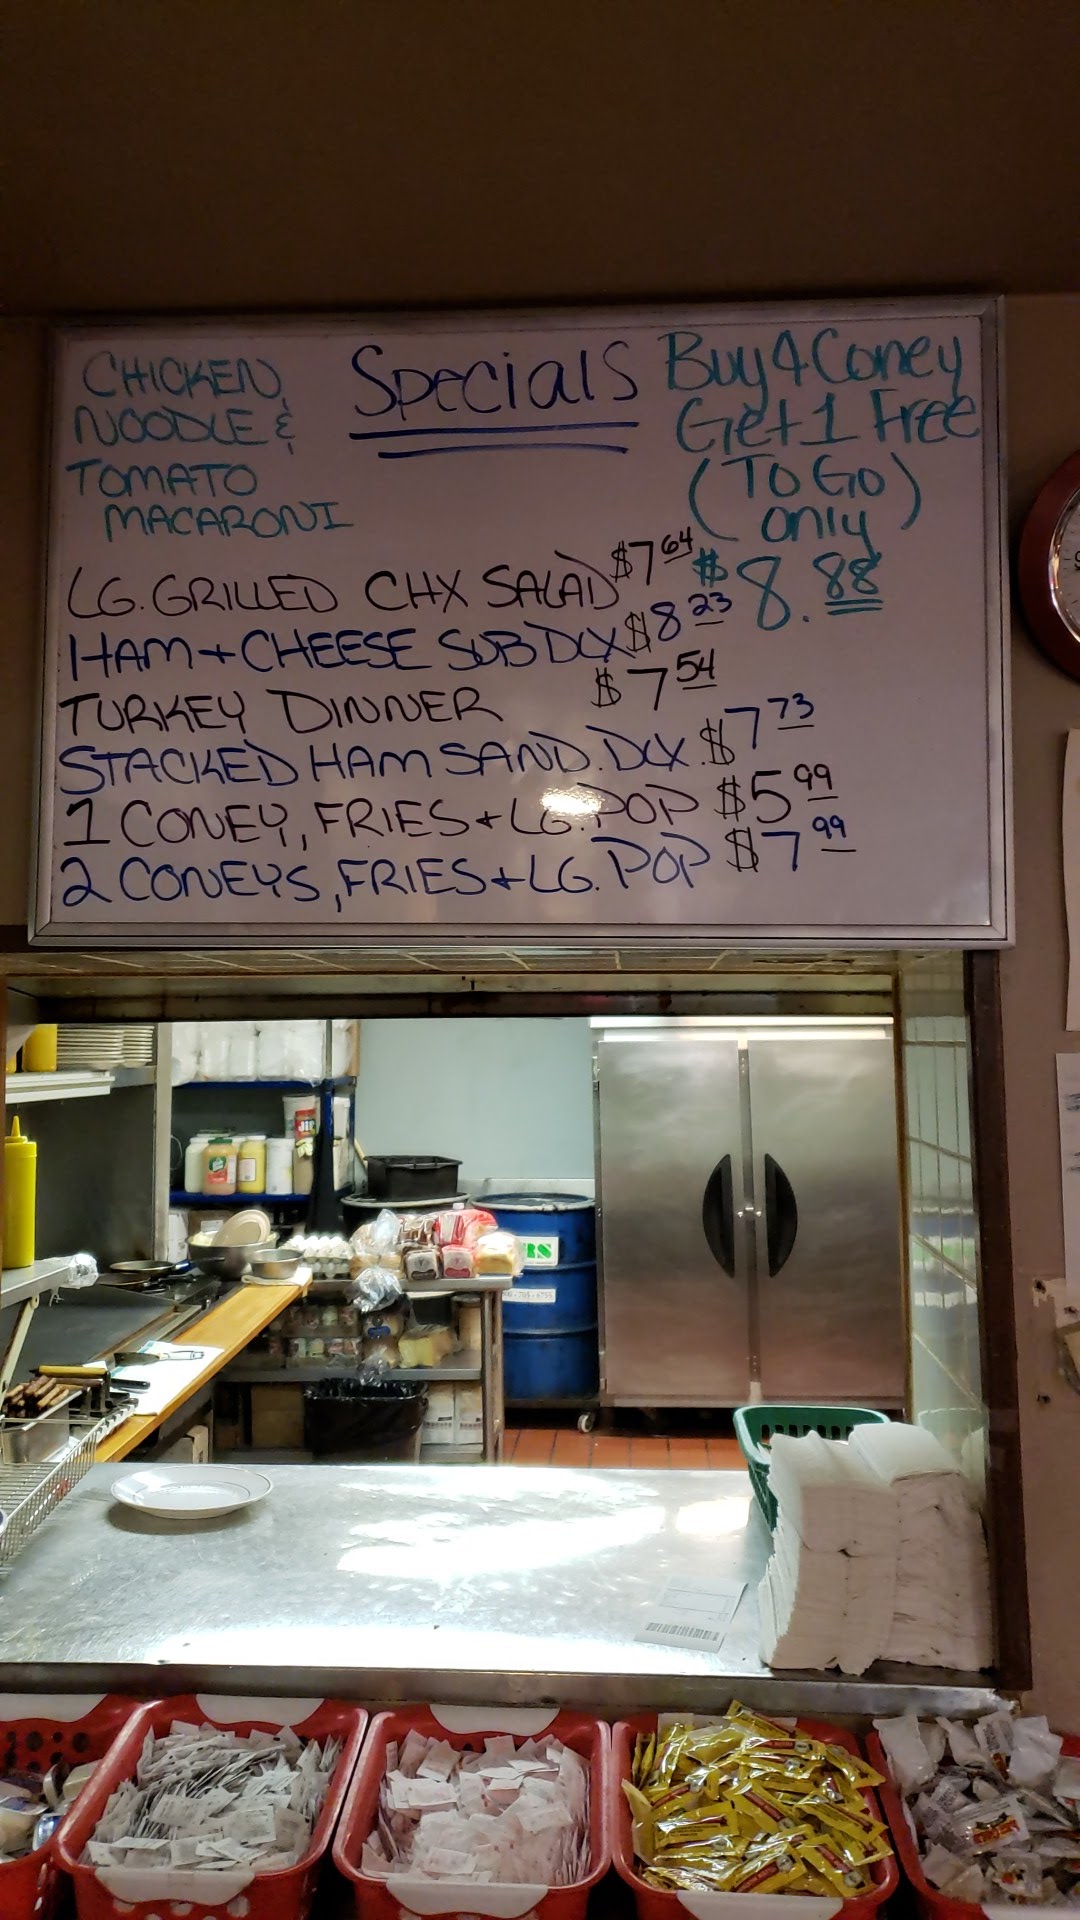 Specials
CHICKEN,
NOODLE &
TOMATO
MACARONI
Buy 4 Coney
Get 1 Free
(To Go)
only
$8.88
LG. GRILLED CHX SALAD $7.64
1 HAM + CHEESE SUB DLX $8.23
TURKEY DINNER $7.54
STACKED HAM SAND. DLX. $7.73
1 CONEY, FRIES + LG. POP $5.99
2 CONEYS, FRIES + LG. POP $7.99
JIF
RS